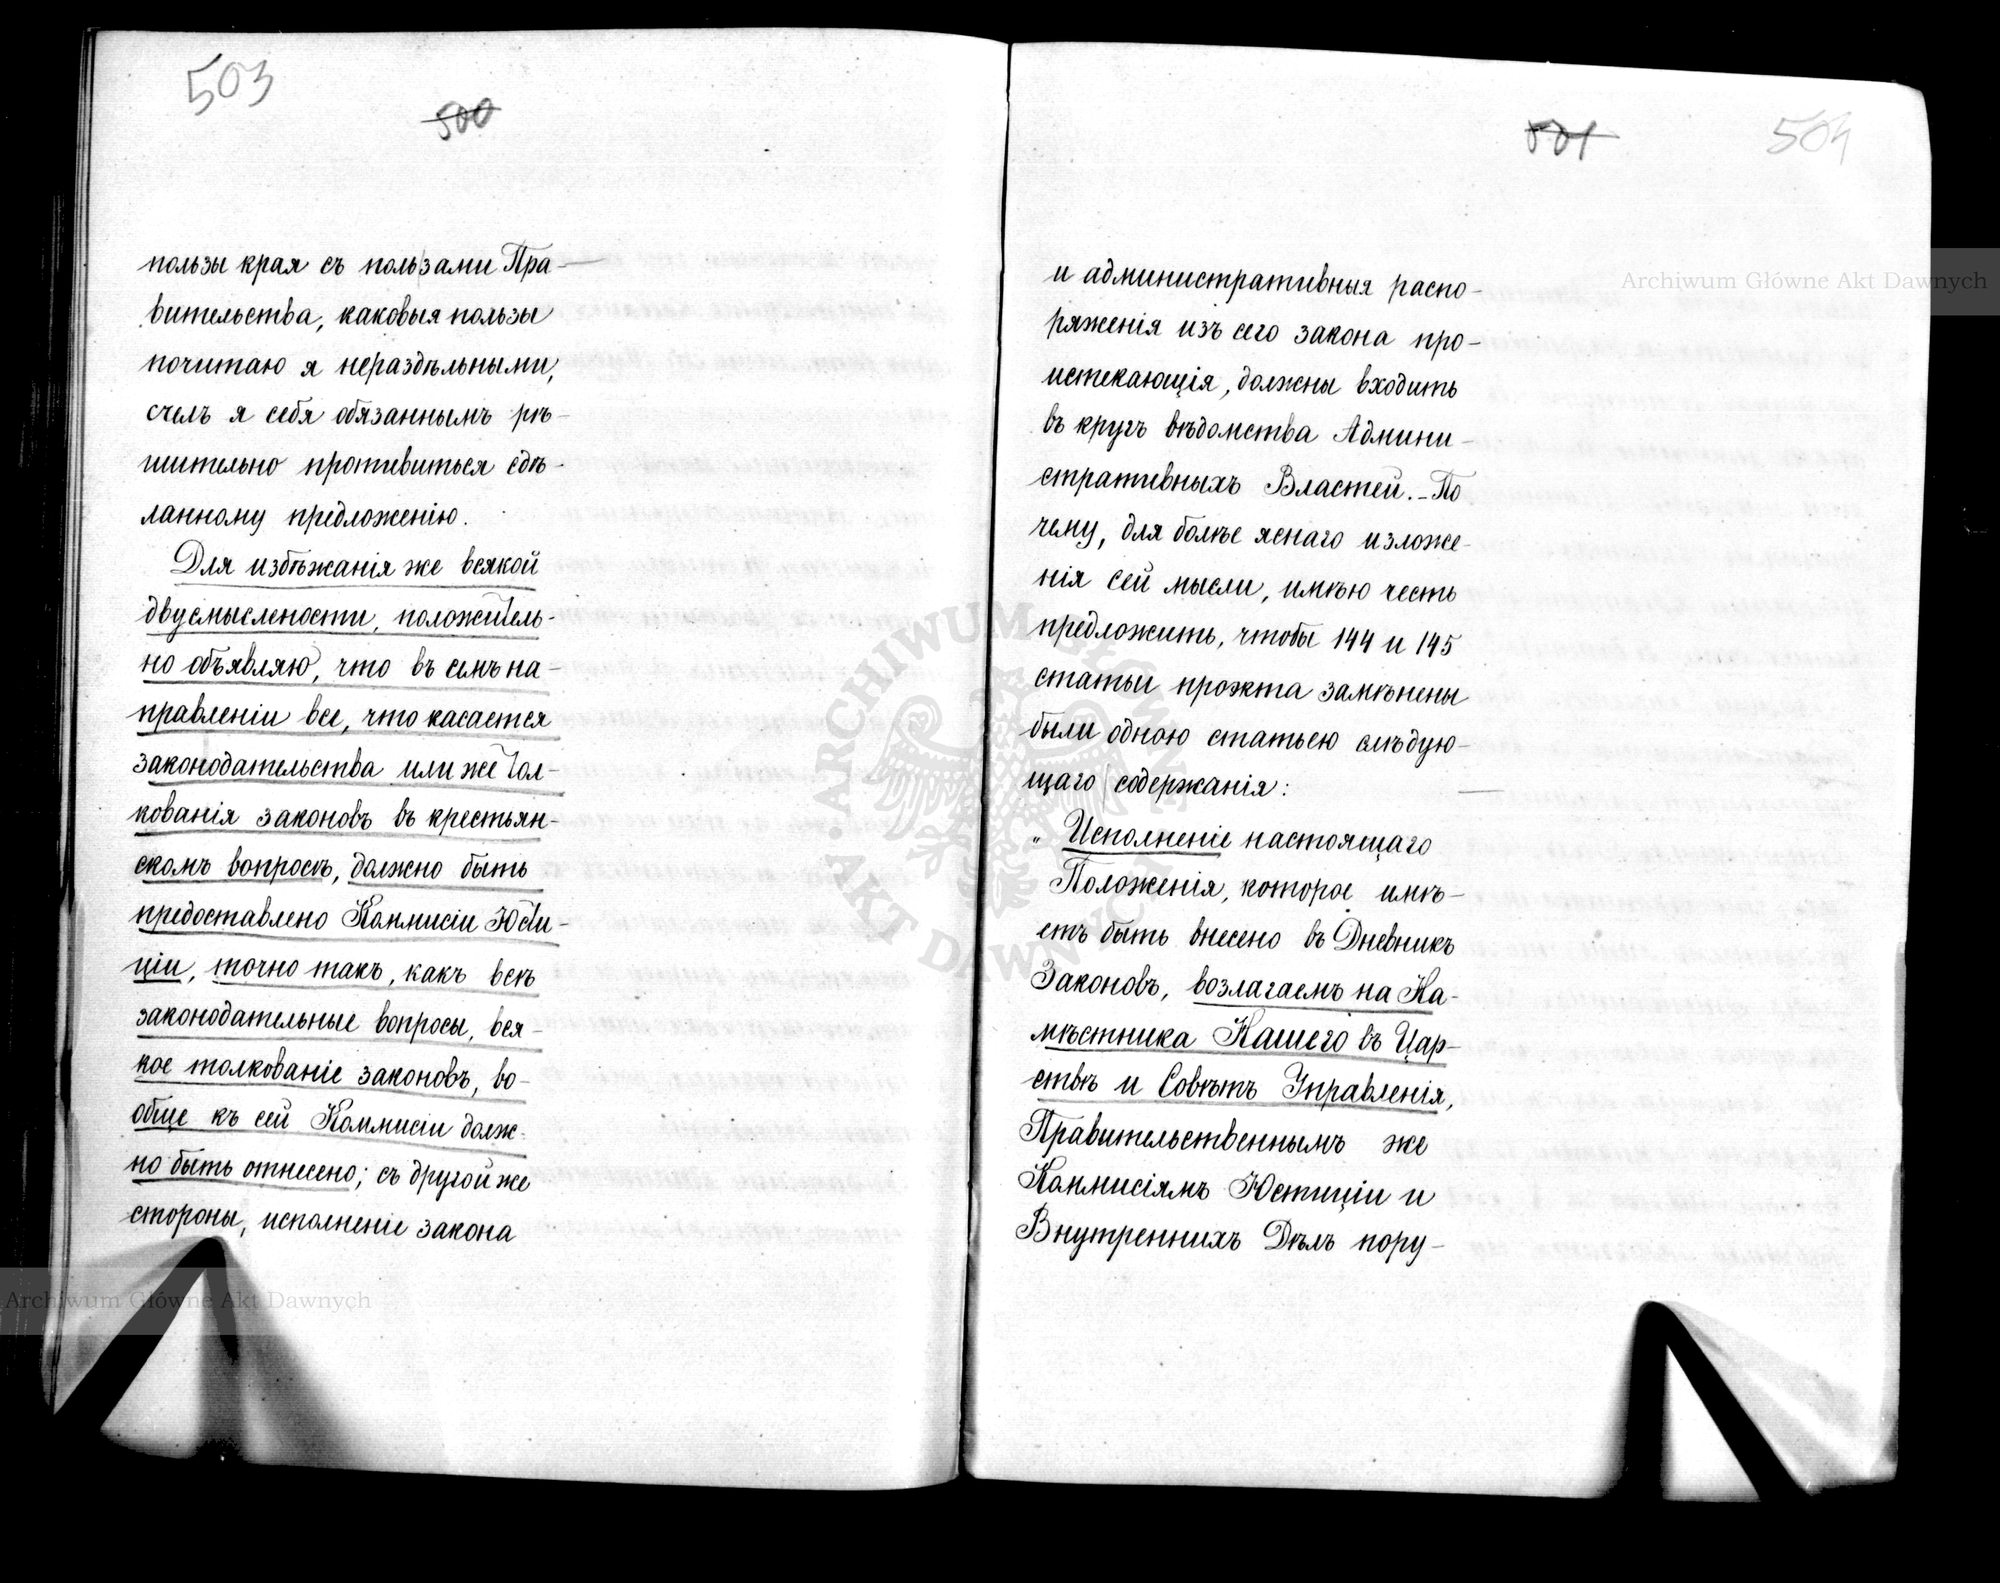 503
500
пользы края съ пользами Пра-
вительства, каковыя пользы
почитаю я нераздѣльными,
счелъ я себя обязаннымъ рѣ-
шительно противиться сдѣ-
ланному предложенію.
Для избѣжанія же всякой
двусмыслености, положитель-
но объявляю, что въ семъ на-
правленіи все, что касается
законодательства или же тол-
кованія законовъ въ крестьян-
скомъ вопросѣ, должно быть
предоставлено Коммисіи Юсти-
ціи, точно такъ, какъ всѣ
законодательные вопросы, вся-
кое толкованіе законовъ, во-
обще къ сей Коммисіи долж-
но быть отнесено; съ другой же
стороны, исполненіе закона
501
504
и административныя распо-
ряженія изъ сего закона про-
истекающія, должны входить
въ кругъ вѣдомства Админи-
стративныхъ Властей. - По
чему, для болѣе яснаго изложе-
нія сей мысли, имѣю честь
предложить, чтобы 144 и 145
статьи проэкта замѣнены
были одною статьею слѣдую-
щаго содержанія:
„ Исполненіе настоящаго
Положенія, которое имѣ-
етъ быть внесено въ Дневникъ
Законовъ, возлагаемъ на На-
мѣстника Нашего въ Цар-
ствѣ и Совѣтъ Управленія,
Правительственнымъ же
Коммисіямъ Юстиціи и
Внутреннихъ Дѣлъ пору-
Archiwum Główne Akt Dawnych
Archiwum Główne Akt Dawnych
ARCHIWUM GŁÓWNE AKT DAWNYCH